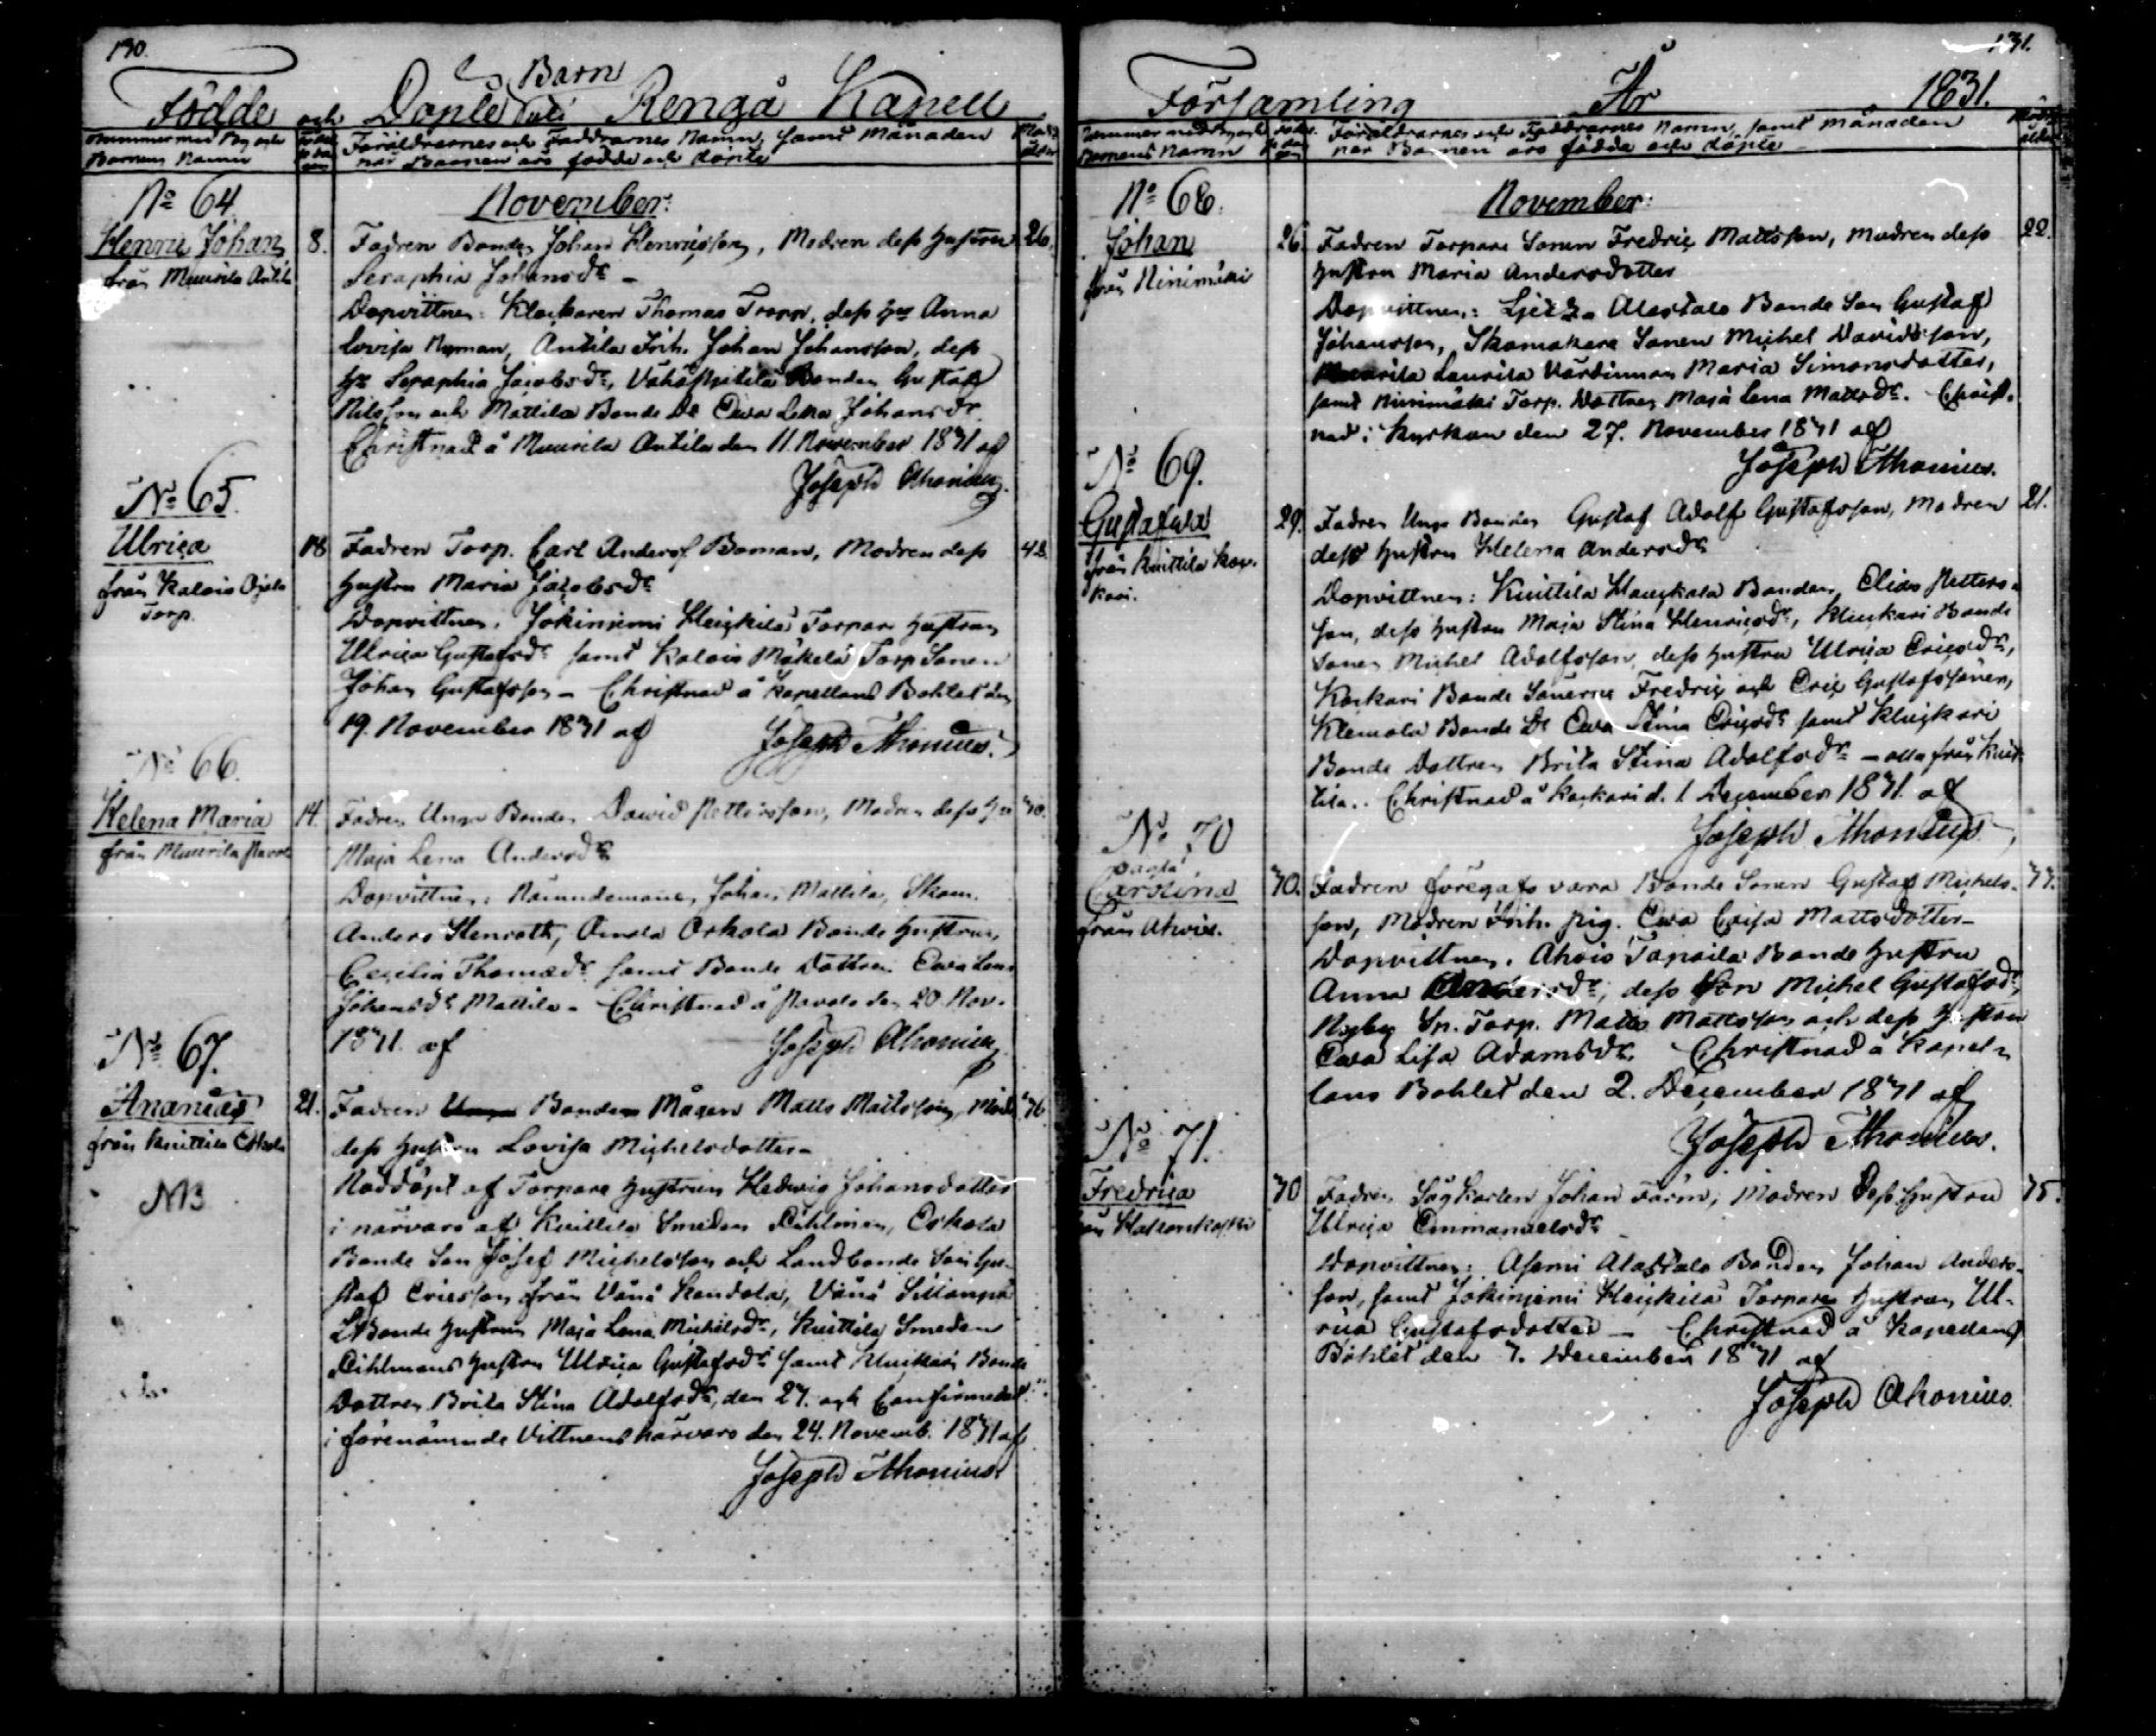 130.
Födde och Döpte Barn uti Rengå Kapell
Nummer med By och Barnens Namn
Föräldrarnes och Faddrarnes Namn, samt Månaden
när Barnen äro födde och döpte
November:
No 64
Henric Johan
från Muurila Antila
8. Fadren Bonden Johan Henricsson, Modren dess Hustru 26.
Seraphia Johansdr
Dopvittnen: Klockaren Thomas Tropp, dess Hu Anna
Lovisa Nyman, Antila Inh. Johan Johansson, dess
Hu Seraphia Jacobsdr, Bonden Gustaf
Nilsson och Mattila Bonde Dr Ewa Lena Johansdr
Christnad å Muurila Antila den 11 November 1831 af
Joseph Ahonius.
No 65.
Ulrica
från Kalois Ojala
Torp.
18 Fadren Torp. Carl Andersf Boman, Modren dess 42
Hustru Maria Jacobsdr
Dopvittnen. Jokiniemi Heickilä Torpare Hustrun
Ulrica Gustafsdr samt Kalois Mäkelä Torp Sonen
Johan Gustafsson – Christnad å Kapellans Bohlet den
19. November 1831 af Joseph Ahonius.
No 66.
Helena Maria
från Muurila Pavola
14. Fadren Unge Bonden David Pettersson, Modren dess Hu 30.
Maja Lena Andersdr
Dopvittnen: Nämndemannen Johan Mattila, Skom.
Anders Stenroth, Orkola Bonde Hustrun
Cecilia Thomædr samt Bonde Dottren Ewa Lena
Johansdr Mattila – Christnad å Pavola den 20 Nov.
1831. af Joseph Ahonius
No 67.
Ananias
från Knittila Orkola
NB
21. Fadren Bonden Mågen Matts Mattsson, Mod. 36
dess Hustru Lovisa Michelsdotter –
Nöddöpt af Torpare Hustrun Hedvig Johansdotter
i närvaro af Knittila Smeden Dihlman, Orkola
Bonde Son Josef Michelsson och Landbonde Son Gu-
staf Ericsson från Vänä Kandola, Vänä Sillanpä
LBonde Hustrun Maja Lena Michelsdr, Knittila Smeden
Dihlmans Hustru Ulrica Gustafsdr samt Bonde
Dottren Brita Stina Adolfsdr, den 23. och Confirmerad
i förenämnde Vittnens närvaro den 24. Novemb. 1831 af
Joseph Ahonius
131.
Församling År 1831.
Nummer med By och Barnens Namn
Föräldrarnes och Faddrarnes Namn, samt månaden
när Barnen äro födda och döpte
November:
No 68.
Johan
från Niinimäki
26. Fadren Torpare Sonen Fredric Mattsson, Modren dess 22.
Hustru Maria Andersdotter
Dopvittnen: Alastalo Bonde Son Gustaf
Johansson, Skomakare Sonen Michel Davidsson,
Muurila Laurila Värdinnan Maria Simonsdotter,
samt Niinimäki Torp. Dottren Maja Lena Mattsdr. Christ-
nad i Kyrkan den 27. November 1831 af
Joseph Ahonius.
No 69.
Gustafava
från Knittila Koc-
kari.
29. Fadren Unge Bonden Gustaf Adolf Gustafsson, Modren 21.
dess Hustru Helena Andersdr
Dopvittnen: Knittila Bonden Elias Petters-
son, dess Hustru Maja Stina Henricsdr, Bonde
Sonen Michel Adolfsson, dess Hustru Ulrica Ericsdr,
Kockari Bonde Sönerne Fredric och Eric Gustafssöner,
Klemola Bonde Dr Ewa Stina Ericsdr samt
Bonde Dottren Brita Stina Adolfsdr – alla från Knit-
tila. Christnad å Kockari d. 1 December 1831. af
Joseph Ahonius
No 70
oägta
Carolina
från Ahois.
30. Fadren föregafs vara Bonde Sonen Gustaf Michels- 33.
son, Modren Inh. pig. Ewa Caisa Mattsdotter –
Dopvittnen. Ahois Tapaila Bonde Hustru
Anna Andersdr, dess Son Michel Gustafss.
Nyby Sn. Torp. Matts Mattsson och dess Hustru
Ewa Lisa Adamsdr. Christnad å Kapel-
lans Bohlet den 2. December 1831 af
Joseph Ahonius.
No 71.
Fredrica
30 Fadren Sågkarlen Johan Färm, Modren dess Hustru 35.
Ulrica Emmanuelsdr
Dopvittnen: Asemi Alastalo Bonden Johan Anders-
son, samt Jokiniemi Heickilä Torpare Hustrun Ul-
rica Gustafsdotter – Christnad å Kapellans
Bohlet den 3. December 1831 af
Joseph Ahonius.